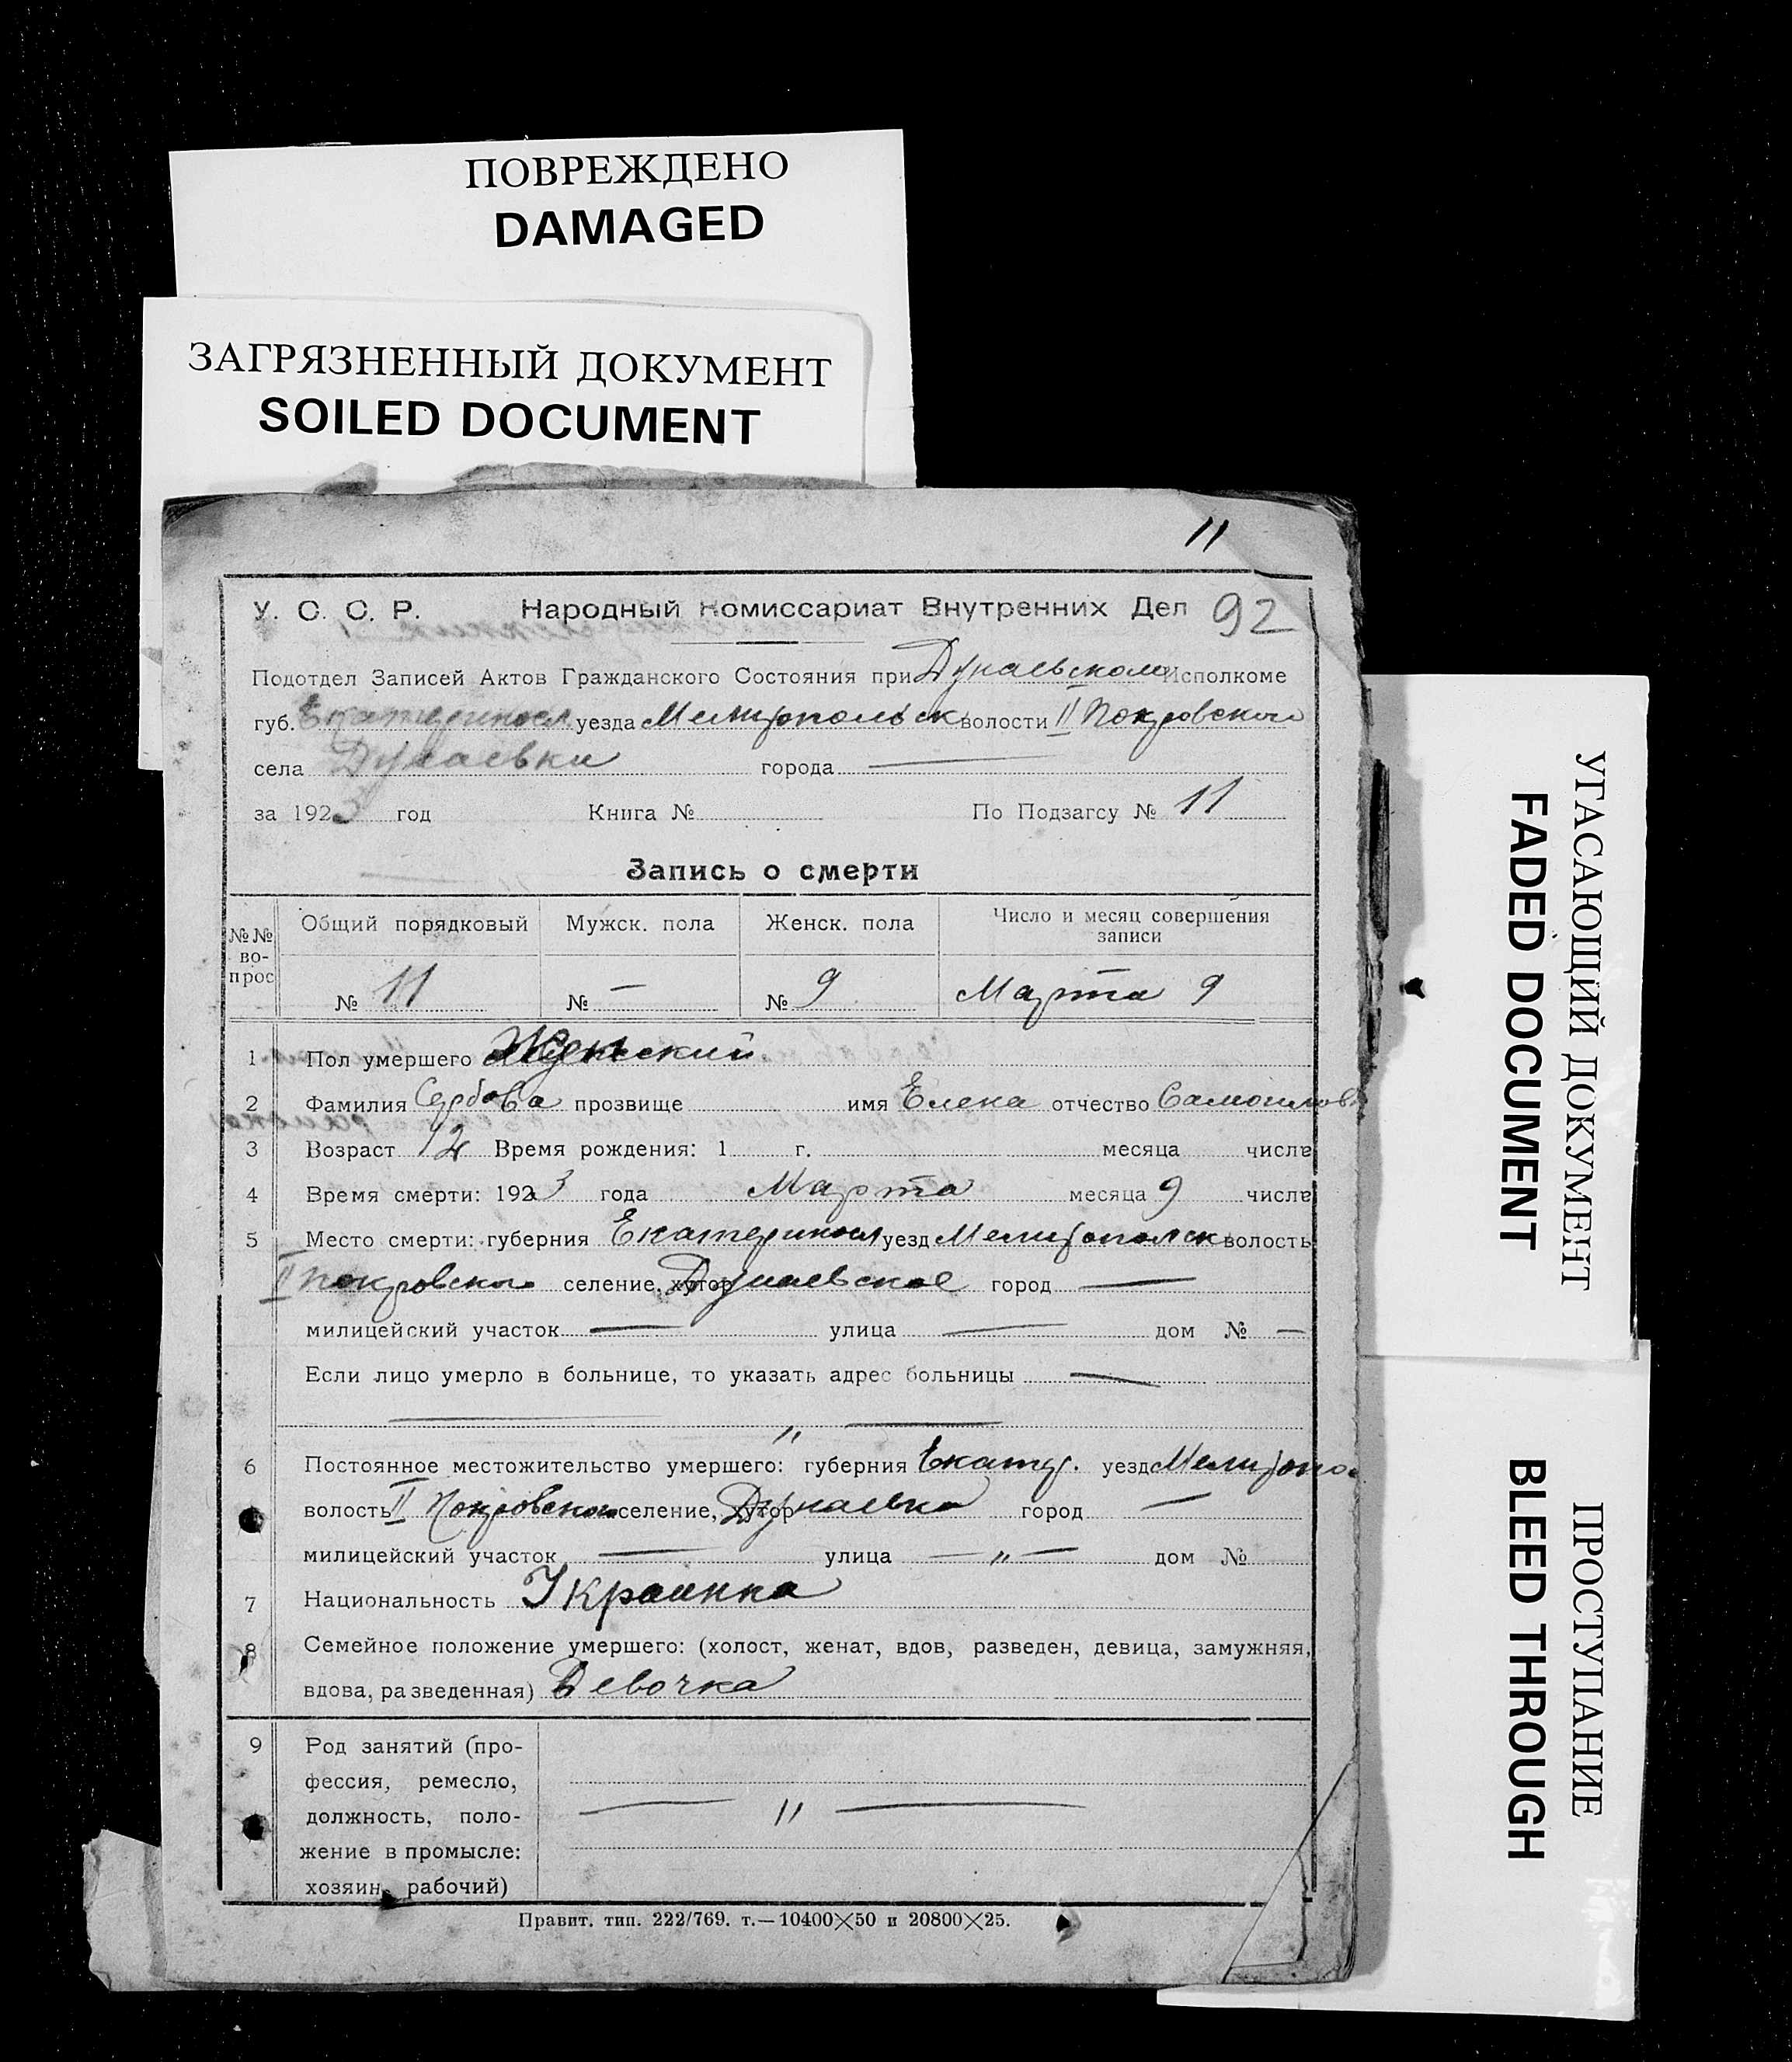 ПОВРЕЖДЕНО
DAMAGED
ЗАГРЯЗНЕННЫЙ ДОКУМЕНТ
SOILED DOCUMENT
11
У. С. С. Р. Народный Комиссариат Внутренних Дел 92
Подотдел Записей Актов Гражданского Состояния при Дунаевском Исполкоме
губ. Екатериносл уезда Мелитопольск волости II Покровского
села Дунаевки города —
за 1923 год Книга № По Подзагсу № 11
Запись о смерти
№№ во-прос Общий порядковый Мужск. пола Женск. пола Число и месяц совершения записи
№ 11 № — № 9 Марта 9
1 Пол умершего Женский
2 Фамилия Сербова прозвище имя Елена отчество Самоилов
3 Возраст Время рождения: 1 г. месяца числа
4 Время смерти: 1923 года Марта месяца 9 числа
5 Место смерти: губерния Екатериносл уезд Мелитопольск волость
II Покровского селение, хутор Дунаевское город —
милицейский участок — улица — дом № —
Если лицо умерло в больнице, то указать адрес больницы —
— " —
6 Постоянное местожительство умершего: губерния Екатер. уезд Мелитопо
волость II Покровского селение, хутор Дунаевка город —
милицейский участок — улица — " — дом №
7 Национальность Украинка
8 Семейное положение умершего: (холост, женат, вдов, разведен, девица, замужняя,
вдова, разведенная) Девочка
9 Род занятий (про-
фессия, ремесло,
должность, поло- — " —
жение в промысле:
хозяин, рабочий)
Правит. тип. 222/769. т.—10400×50 и 20800×25.
УГАСАЮЩИЙ ДОКУМЕНТ
FADED DOCUMENT
ПРОСТУПАНИЕ
BLEED THROUGH